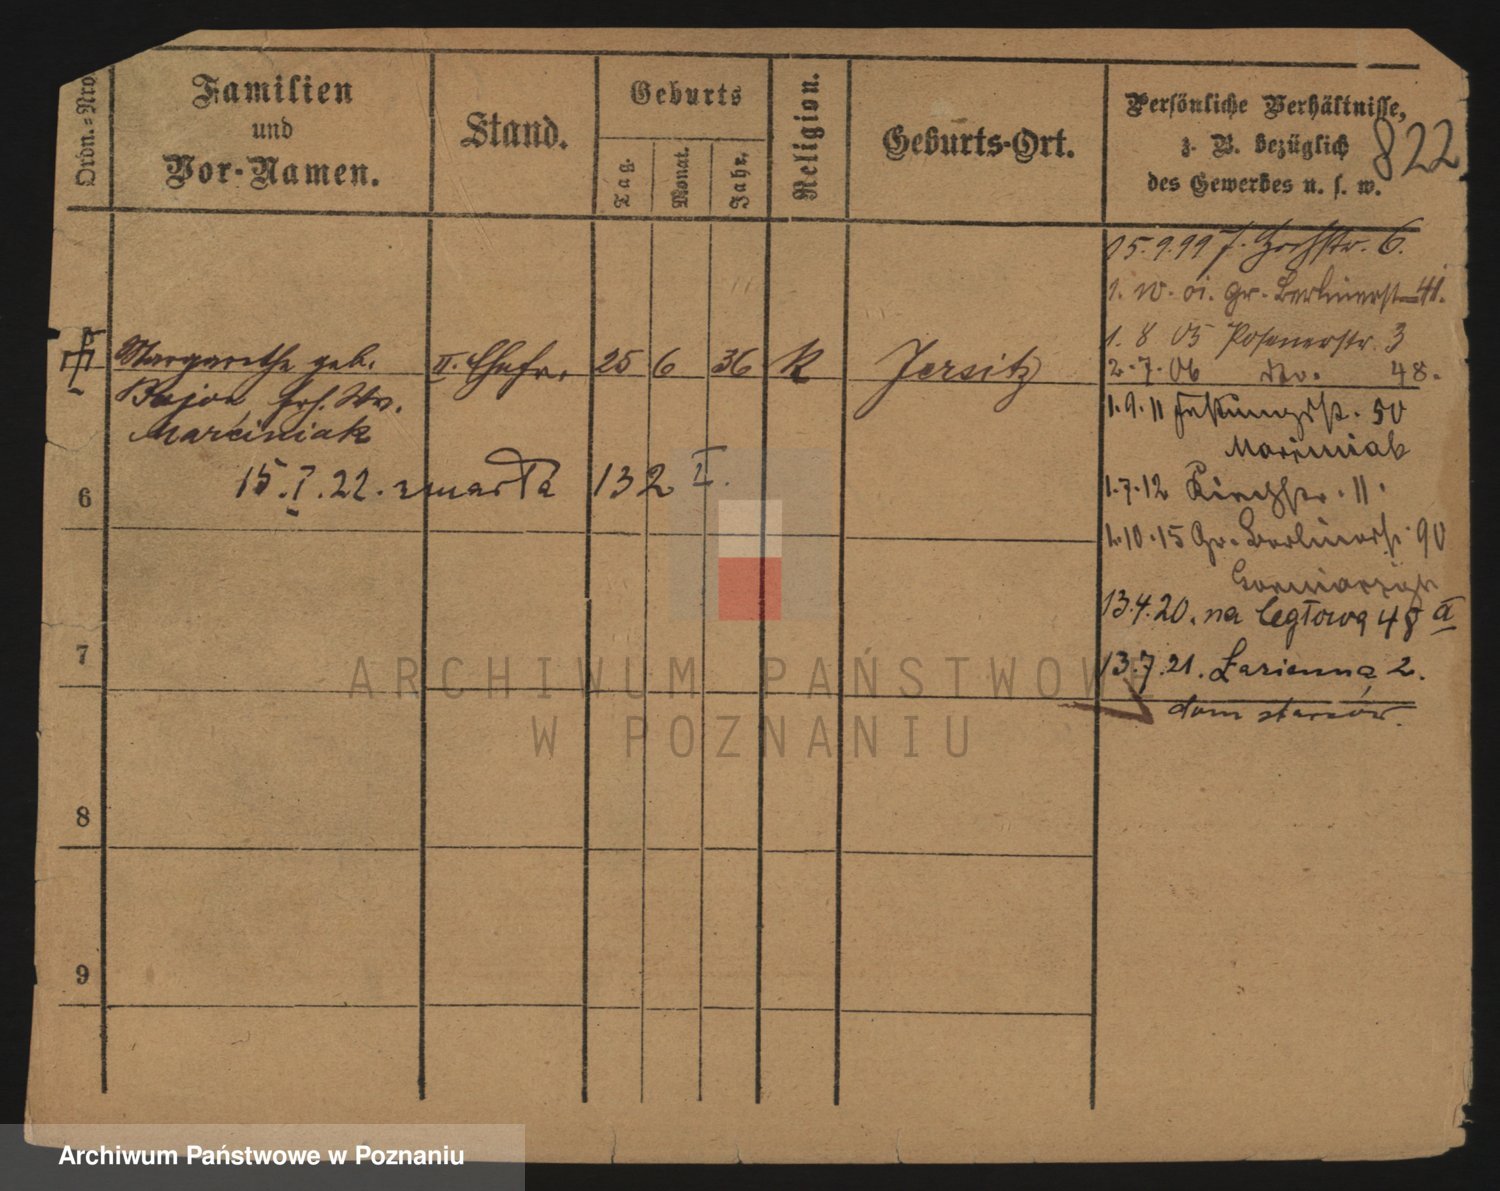 Ordn.=Nro.
Familien
und
Vor-Namen.
Stand.
Geburts
Tag.
Monat.
Jahr.
Religion.
Geburts-Ort.
Persönliche Verhältnisse,
z. B. bezüglich
des Gewerbes u. s. w.
822
15.9.99 f. Hochstr. 6.
1. 10. 01. Gr. Berlinerst 41.
1. 8 05 Posenerstr. 3
2.7.06 No. 48.
Margarethe geb. II. Ehefr. 25 6 36 K Jersitz
Marciniak
1.9.11 Festungsst. 50
Marciniak
6
15.I.22. zmarła 132 I.
1.7.12 Kirchstr. 11.
1.10.15 Gr. Berlinerst. 90
13.4.20. na Cegłową 48 a
7
13.7.21. Łazienna 2.
dom starców.
8
9
ARCHIWUM PAŃSTWOWE
W POZNANIU
Archiwum Państwowe w Poznaniu